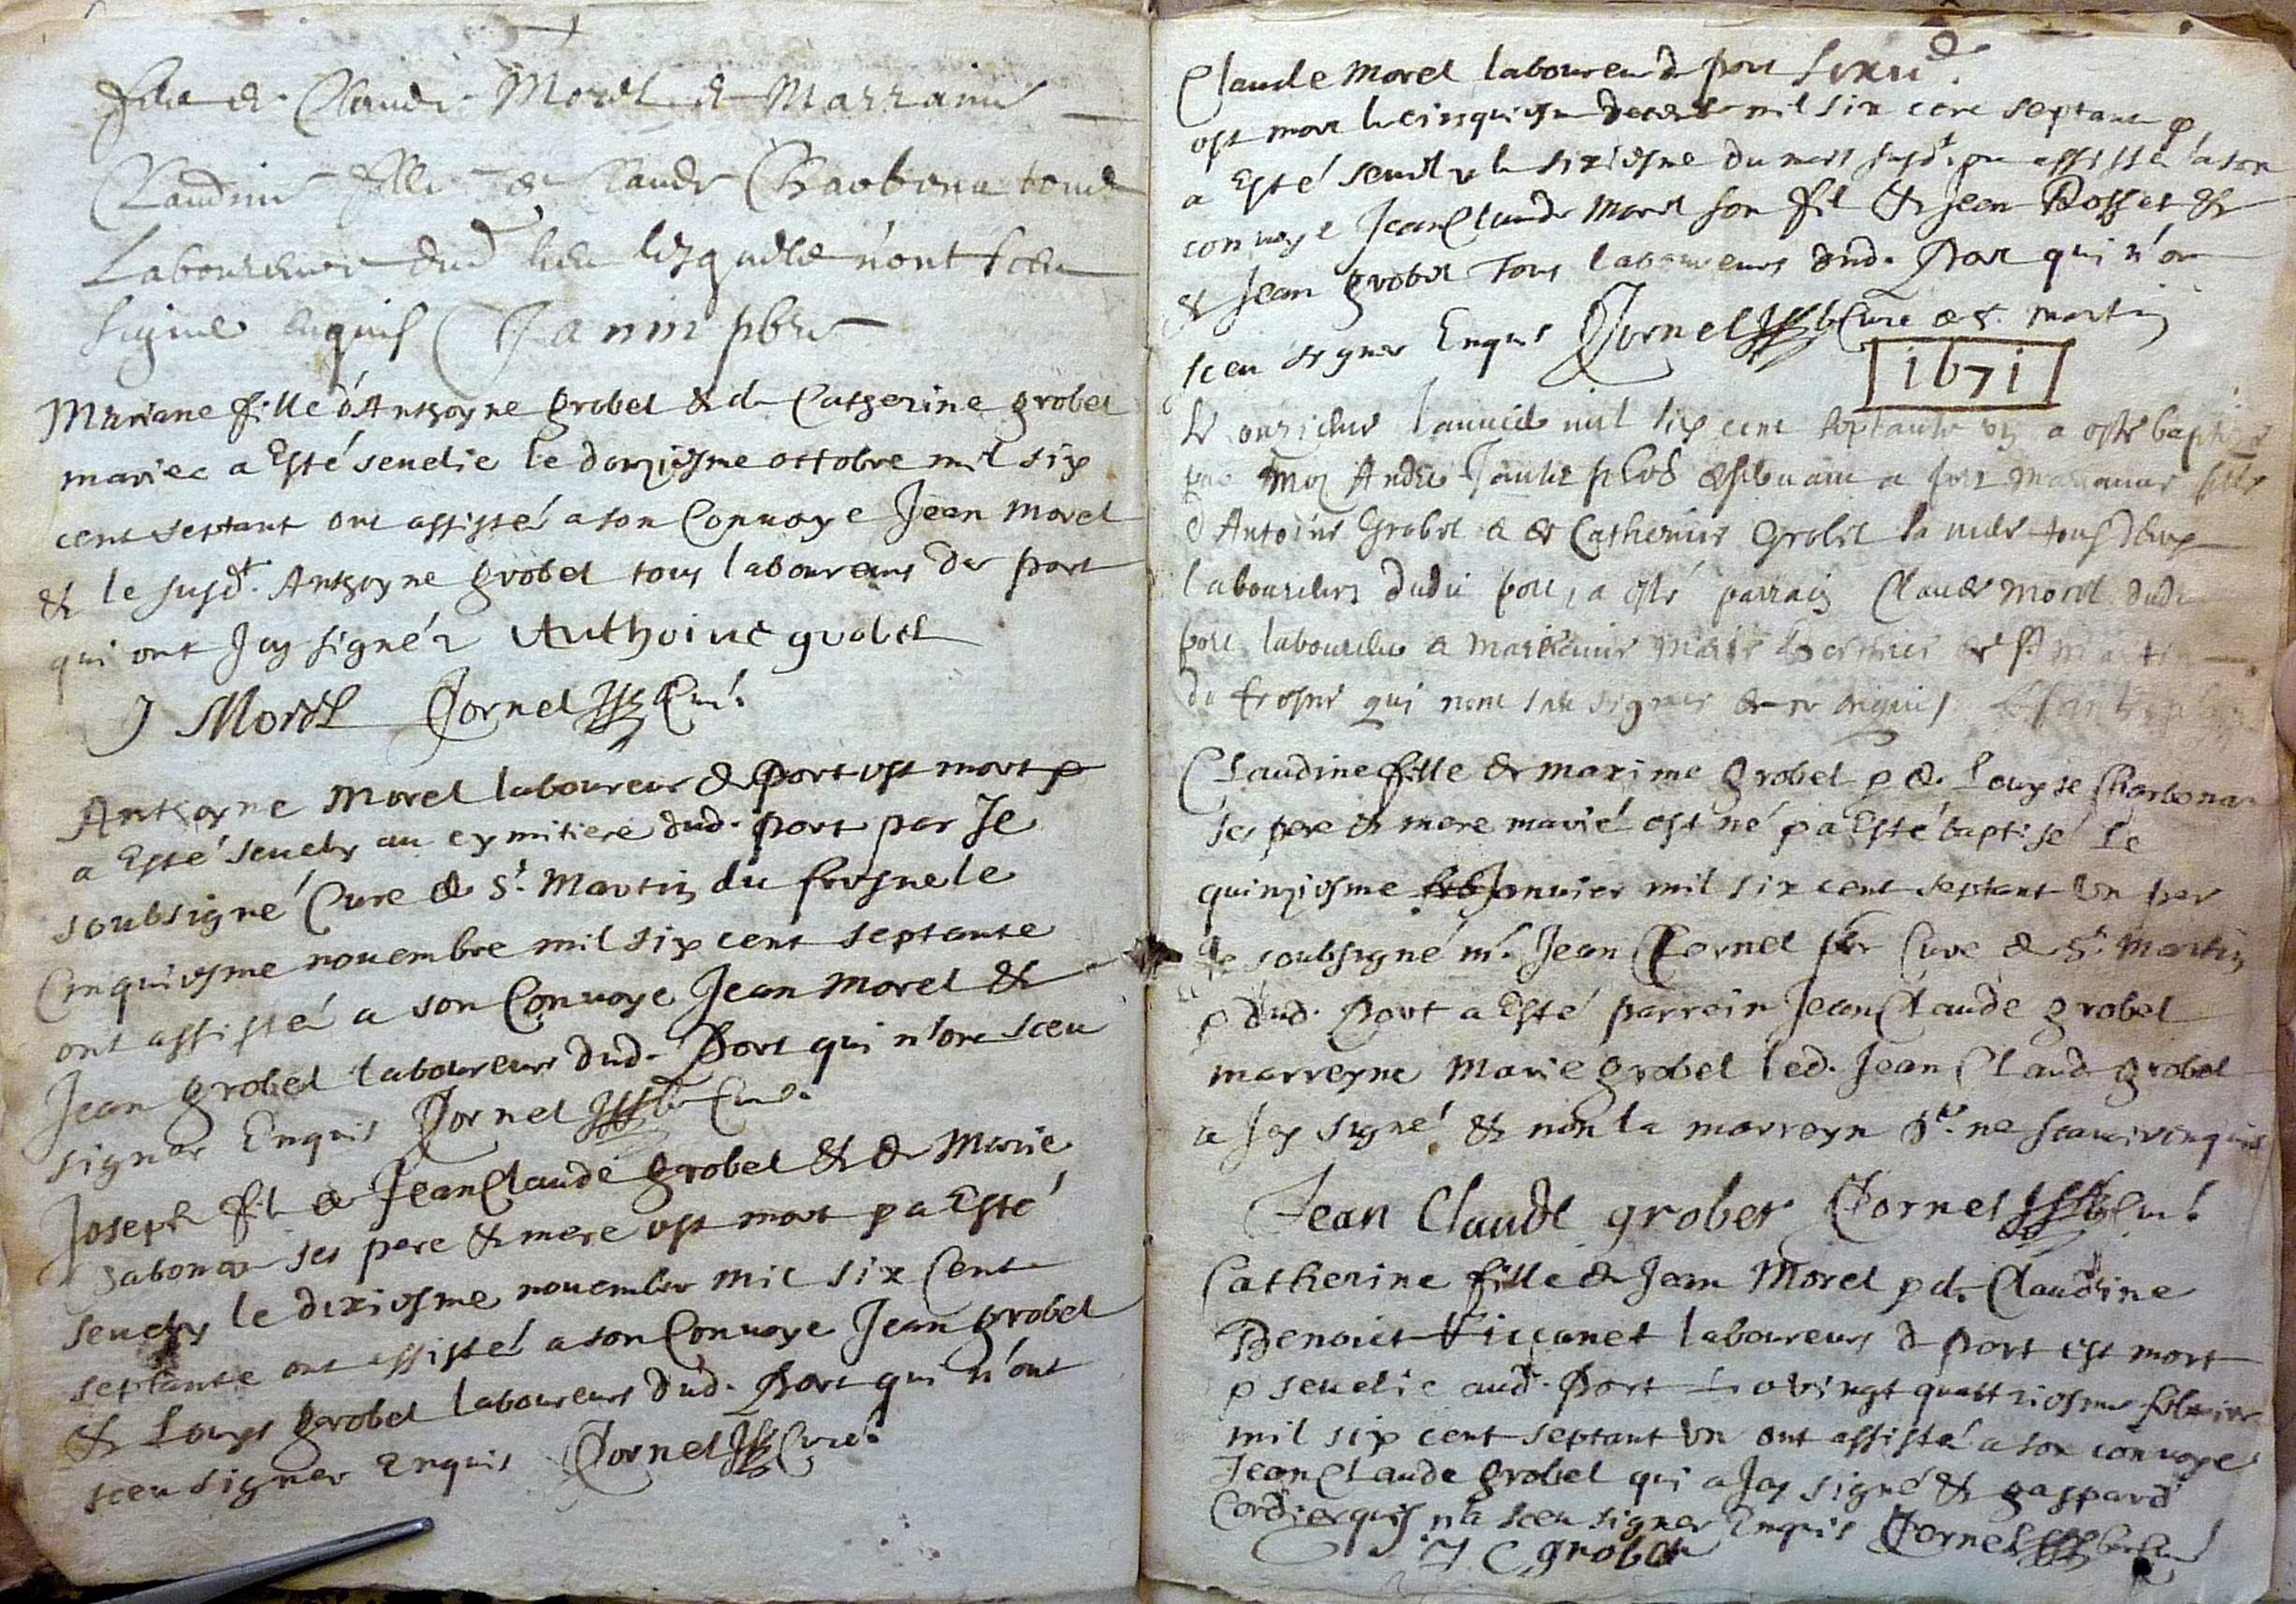 fils de Claude Morel et Marraine
Claudine fille de Claude Charbona tous
Laboureurs dud. lieu lesquels n'ont sceu
signer enquis Janin pbre
Mariane fille d'Anthoyne grobel & de Catherine grobel
mariee a Esté sevelie le douziesme octobre mil six
cent septant ont assisté a son Convoye Jean Morel
& le susdt. Anthoyne grobel tous laboureurs de port
qui ont Jcy signéz Anthoine grobel
J Morel Cornel Curé.
Anthoyne Morel laboureur de Port est mort
a Esté sevely au cymitiere dud. Port par Je
soubsigné Cure de St. Martin du fresne le
Cinquiesme novembre mil six cent septante
ont assisté a son Convoye Jean Morel &
Jean grobel laboureurs dud. Port qui n'ont sceu
signer Enquis Cornel Curé.
Joseph fil de Jean Claude grobel & de Marie
ses pere & mere est mort p a Esté
sevely le dixiesme novembre mil six Cent
septante ont assisté a son Convoye Jean grobel
& Louys grobel laboureurs dud. Port qui n'ont
sceu signer Enquis Cornel Curé.
Claude Morel laboureur de port
est mort le cinquiesme mil six cent septante p
a Esté sevely le sixiesme du mois susdt. ont assisté a son
convoye Jean Claude Morel son fil & Jean Rosset &
& Jean grobel Tous laboureurs dud. Port qui n'on
sceu signer Enquis Cornel Cure de St. Martin
1671
Le onzieme Janvier mil six cent septante un a esté baptisé
par Moy André pbre
d'Antoine Grobel & de Catherine Grobel sa mere tous deux
laboureurs dudit port, a esté parrain Claude Morel dudit
port laboureur & Marraine Marie de St Martin
du fresne qui n'ont sceu signer de ce enquis
Claudine fille de maxime grobel p de Louyse Charbona
ses pere & mere marié est né p a Esté baptisé Le
quinziesme Janvier mil six cent septant Un par
Je soubsigné mr. Jean Cornel pbr Cure de St. Martin
p dud. Port a Esté parrain Jean Claude grobel
marreyne Marie grobel led. Jean Claude grobel
a Jcy signé & non la marreyn pr. ne scavoir enquis
Jean Claude grobel Cornel Curé.
Catherine fille de Jean Morel p de Claudine
Benoict laboureurs de Port est mort
p sevelie aud. Port Le vingt quattriesme febvrier
mil six cent septant Un ont assisté a son convoye
Jean Claude grobel qui a Jcy signé & gaspard
Cordier qui n'a sceu signer Enquis Cornel
J C grobel